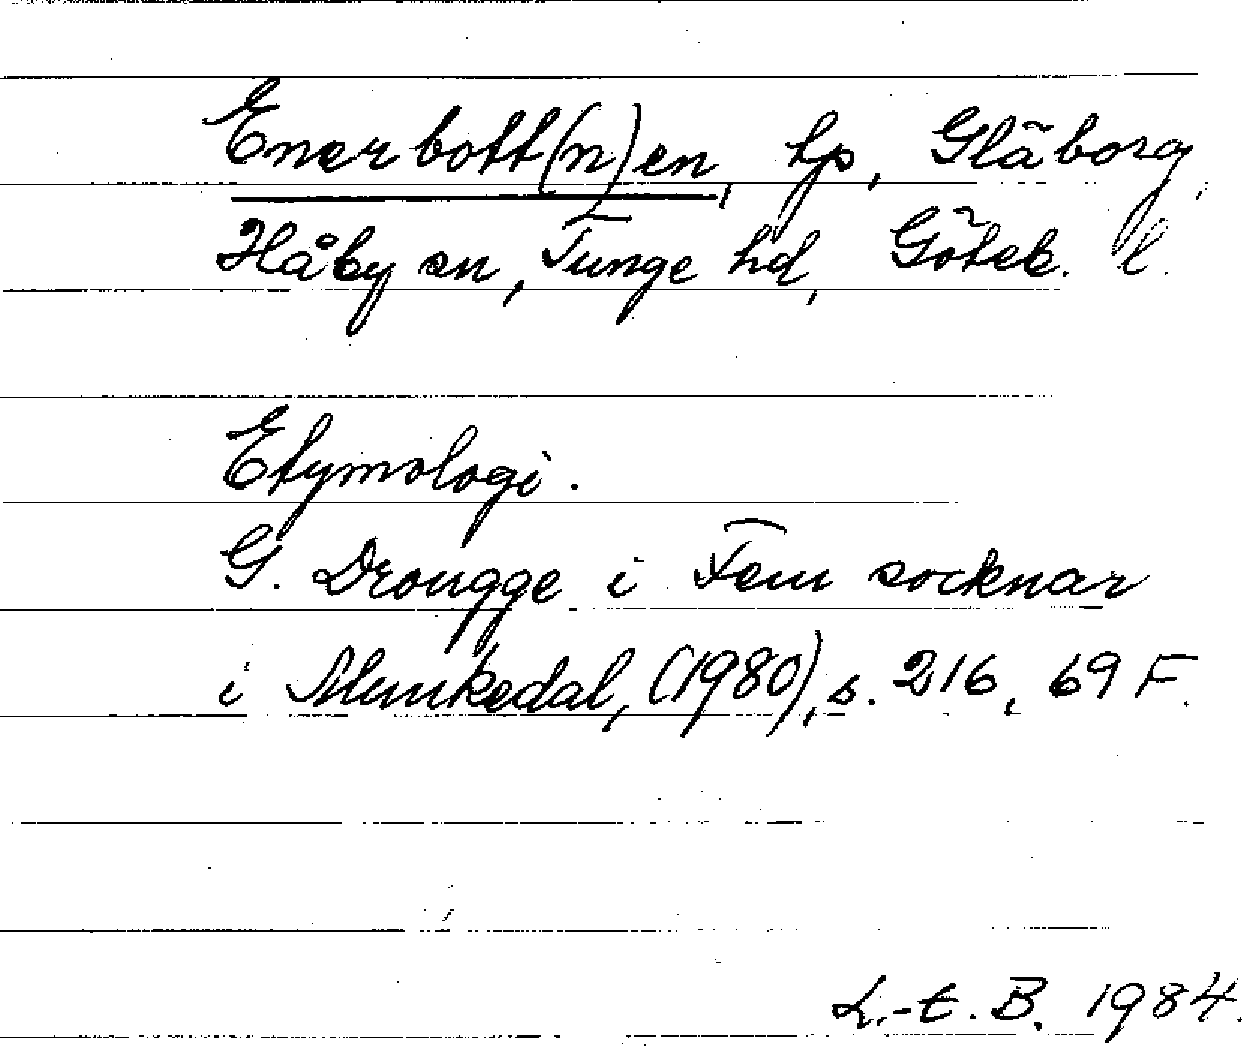 Enerbott(n)en, tp, Gläborg,
Håby sn, Tunge hd, Göteb. l.
Etymologi.
G. Drougge i Fem socknar
i Munkedal, (1980), s. 216, 69 F.
L.-E. B. 1984.